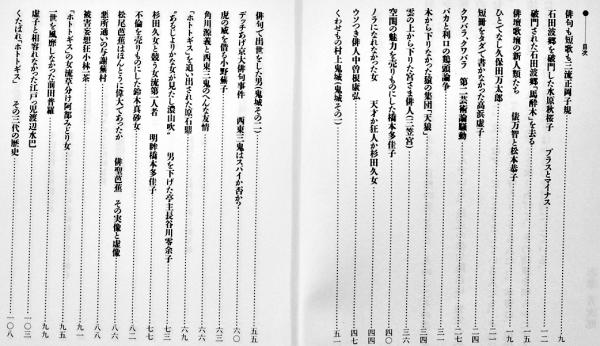 目次
俳句も短歌も三流正岡子規……九
石田波郷を破門した水原秋桜子　プラスとマイナス……一二
破門された石田波郷「馬酔木」を去る……一五
俳壇歌壇の新人類たち　俵万智と松本恭子……一九
ひとでなし久保田万太郎……二一
短冊をタダで書かなかった高浜虚子……二四
クワバラ、クワバラ　第二芸術論騒動……二七
バカと利口の鶏頭論争……三一
木から下りなかった猿の集団「天狼」……三三
雲の上から下りた宮さま俳人(三笠宮)……三六
空閨の魅力を売りものにした橋本多佳子……四〇
ノラになれなかった女　天才か狂人か杉田久女……四四
ウソつき俳人中曽根康弘……四七
くわせもの村上鬼城(鬼城その一)……五一
俳句で出世をした男(鬼城その二)……五五
デッチあげ京大俳句事件　西東三鬼はスパイか否か?……六〇
虎の威を借る小野蕪子……六三
角川源義と西東三鬼のへんな友情……六六
「ホトトギス」を追い出された原石鼎……六九
"あるじよりかな女が見たし濃山吹"　男を下げた亭主長谷川零余子……七三
杉田久女と競う女流第二人者　明眸橋本多佳子……七七
不倫を売りものにした鈴木真砂女……八二
松尾芭蕉はほんとうに偉大であったか　俳聖芭蕉　その実像と虚像……八六
悪所通いの与謝蕪村……八八
被害妄想狂小林一茶……九一
「ホトトギス」の女流草分け阿部みどり女……九五
一世を風靡しなかった前田普羅……九九
虚子と相容れなかった江戸っ児渡辺水巴……一〇三
くたばれ、「ホトトギス」　その三代の歴史……一〇八